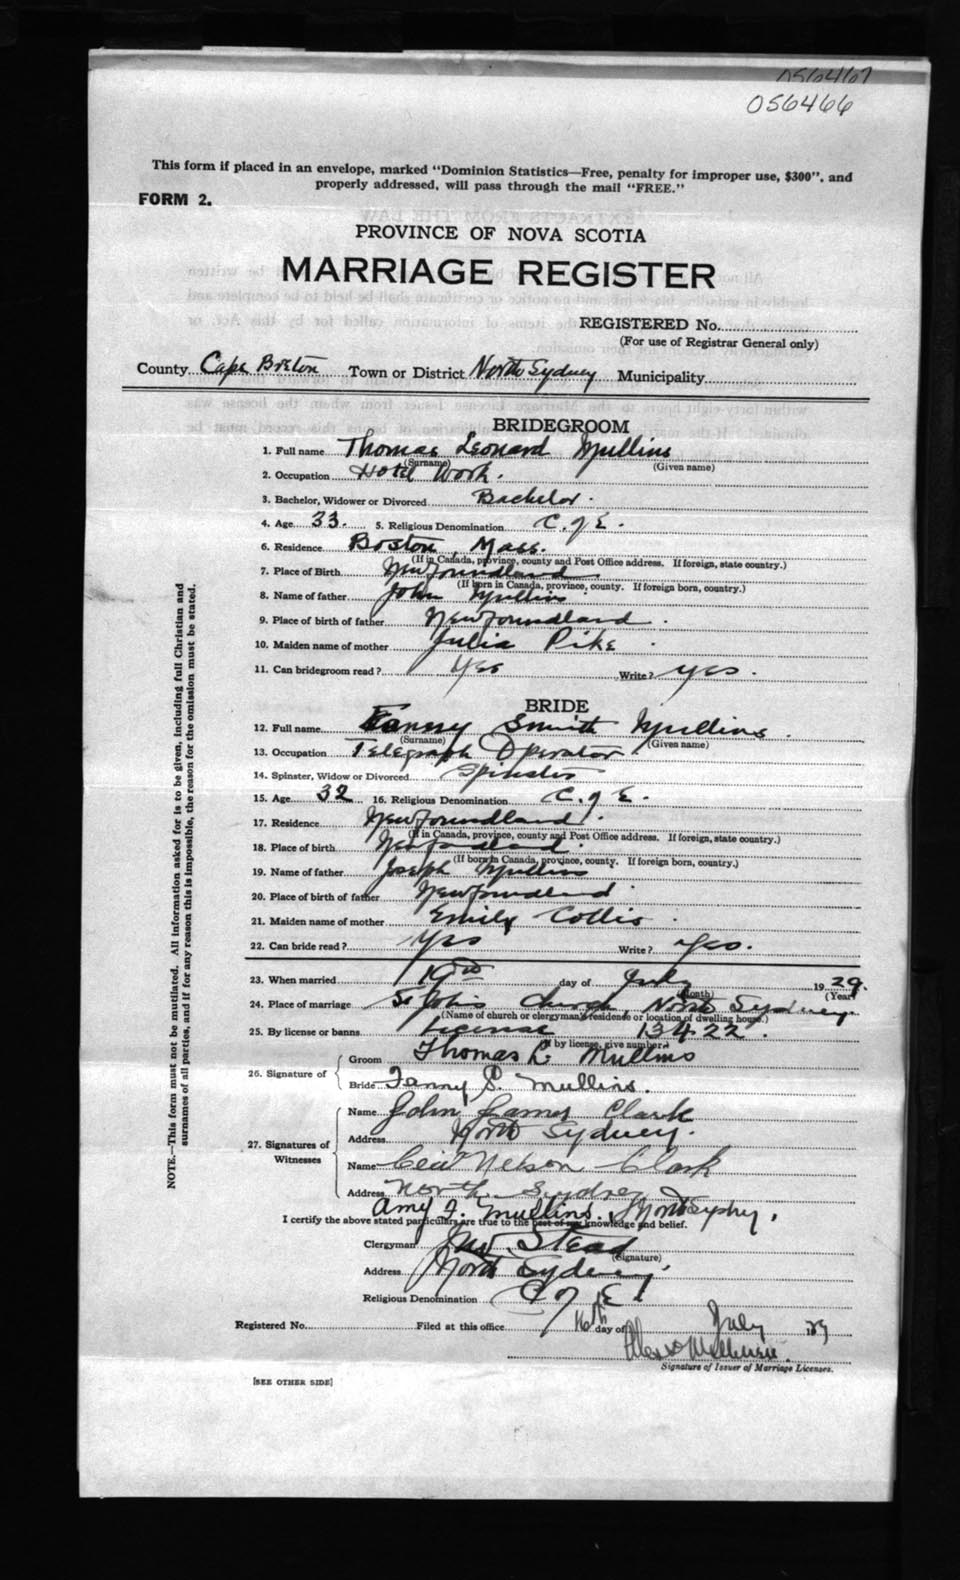 056467
056466
This form if placed in an envelope, marked "Dominion Statistics—Free, penalty for improper use, $300", and
properly addressed, will pass through the mail "FREE."
FORM 2.
PROVINCE OF NOVA SCOTIA
MARRIAGE REGISTER
REGISTERED No.
(For use of Registrar General only)
County Cape Breton Town or District North Sydney Municipality
BRIDEGROOM
1. Full name Thomas Leonard Mullins
(Surname) (Given name)
2. Occupation Hotel Work.
3. Bachelor, Widower or Divorced Bachelor.
4. Age 33. 5. Religious Denomination C. of E.
6. Residence Boston, Mass.
(If in Canada, province, county and Post Office address. If foreign, state country.)
7. Place of Birth Newfoundland
(If born in Canada, province, county. If foreign born, country.)
8. Name of father John Mullins
9. Place of birth of father Newfoundland.
10. Maiden name of mother Julia Pike
11. Can bridegroom read? Yes Write? yes.
BRIDE
12. Full name Fanny Smith Mullins.
(Surname) (Given name)
13. Occupation Telegraph Operator
14. Spinster, Widow or Divorced Spinster
15. Age 32 16. Religious Denomination C. of E.
17. Residence Newfoundland.
(If in Canada, province, county and Post Office address. If foreign, state country.)
18. Place of birth Newfoundland.
(If born in Canada, province, county. If foreign born, country.)
19. Name of father Joseph Mullins
20. Place of birth of father Newfoundland
21. Maiden name of mother Emily Collis
22. Can bride read? Yes Write? Yes.
23. When married day of July 1929.
(Month) (Year)
24. Place of marriage St Johns Church, North Sydney
(Name of church or clergyman's residence or location of dwelling house.)
25. By license or banns License 13422.
(If by license, give number.)
26. Signature of
Groom Thomas L. Mullins
Bride Fanny S. Mullins.
27. Signatures of Witnesses
Name John James Clark
Address North Sydney.
Name Nelson Clark
Address North Sydney
Amy F. Mullins. North Sydney.
I certify the above stated particulars are true to the best of my knowledge and belief.
Clergyman Stead
(Signature)
Address North Sydney
Religious Denomination C of E
Registered No. Filed at this office 16th day of July 1929
Signature of Issuer of Marriage Licenses.
[SEE OTHER SIDE]
NOTE.—This form must not be mutilated. All information asked for is to be given, including full Christian and
surnames of all parties, and if for any reason this is impossible, the reason for the omission must be stated.